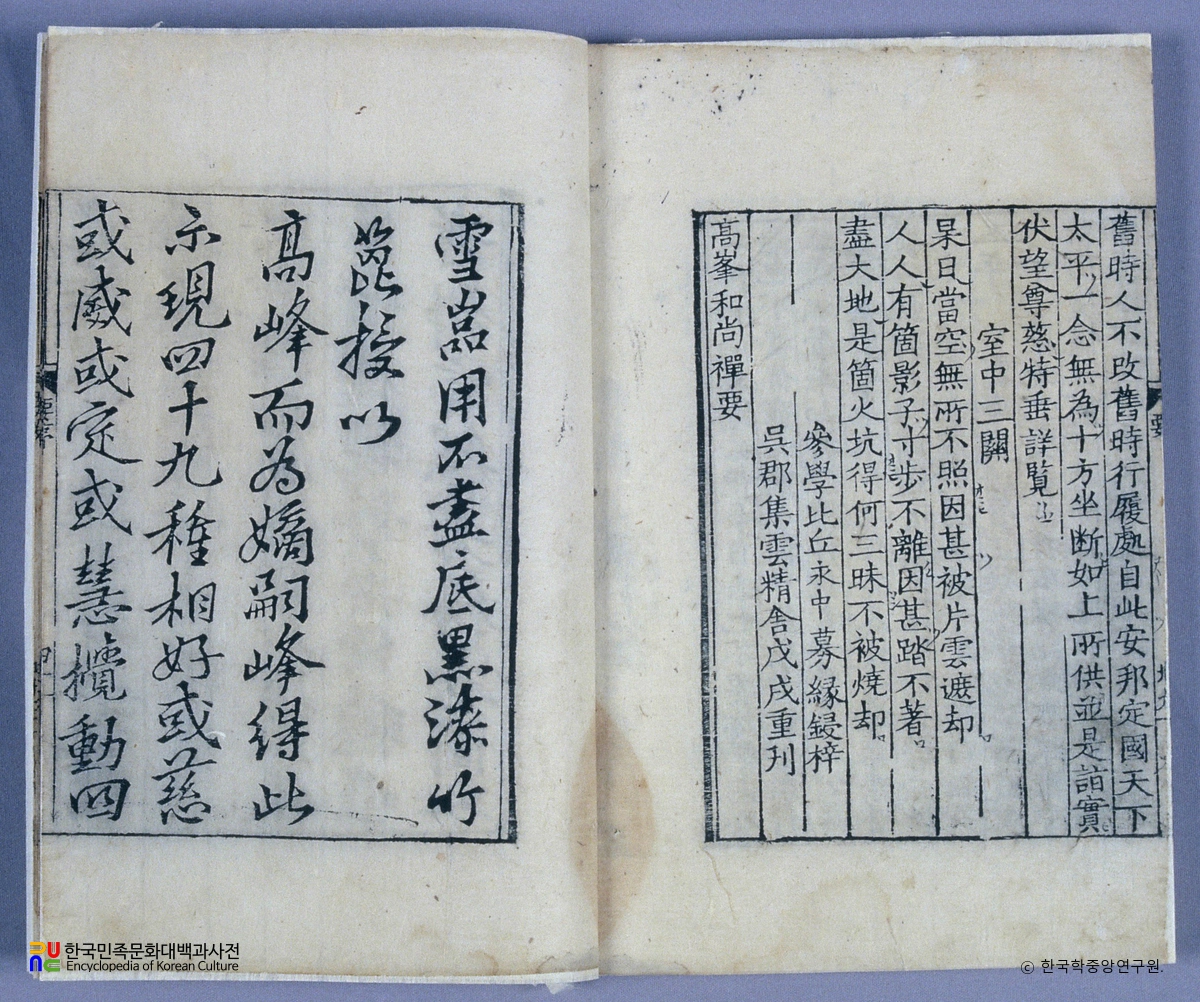 舊時人不改舊時行履處自此安邦定國天下
太平一念無為十方坐斷如上所供並是詣實
伏望尊慈特垂詳覧
室中三關
杲日當空無所不照因甚被片雲遮却
人人有箇影子寸步不離因甚踏不著
盡大地是箇火坑得何三昧不被燒却
叅學比丘永中募緣鋟梓
吳郡集雲精舍戊戌重刊
高峯和尚禪要
要
雪嵓用不盡底黑漆竹
篦授以
高峰而為嫡嗣峰得此
示現四十九種相好或慈
或威或定或慧攪動四
한국민족문화대백과사전
Encyclopedia of Korean Culture
ⓒ 한국학중앙연구원.